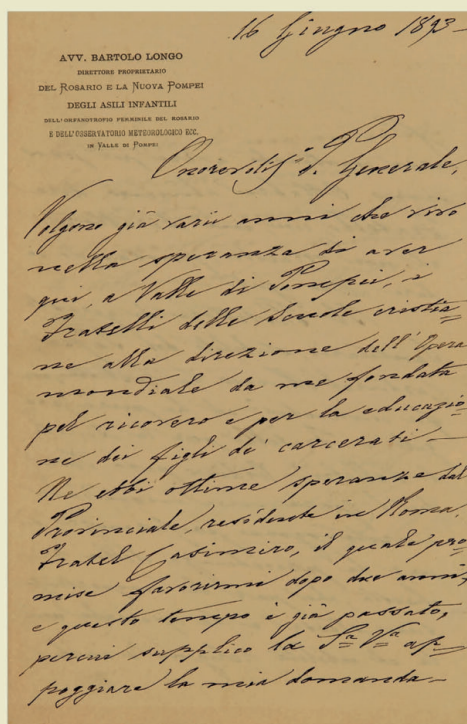 16 Giugno 1893 –
AVV. BARTOLO LONGO
DIRETTORE PROPRIETARIO
DEL ROSARIO E LA NUOVA POMPEI
DEGLI ASILI INFANTILI
DELL'ORFANOTROFIO FEMMINILE DEL ROSARIO
E DELL'OSSERVATORIO METEOROLOGICO ECC.
IN VALLE DI POMPEI
Generale,
Volgono già varii anni che vivo
nella speranza di aver
qui, a Valle di Pompei, i
Fratelli delle Scuole cristia=
ne alla direzione dell'Opera
mondiale da me fondata
pel ricovero e per la educazio=
ne dei figli de' carcerati –
Ne ebbi ottime speranze dal
Provinciale, residente in Roma,
Fratel Casimiro, il quale pro=
mise favorirmi dopo due anni,
e questo tempo è già passato,
perciò supplico la Sa Va ap=
poggiare la mia domanda –